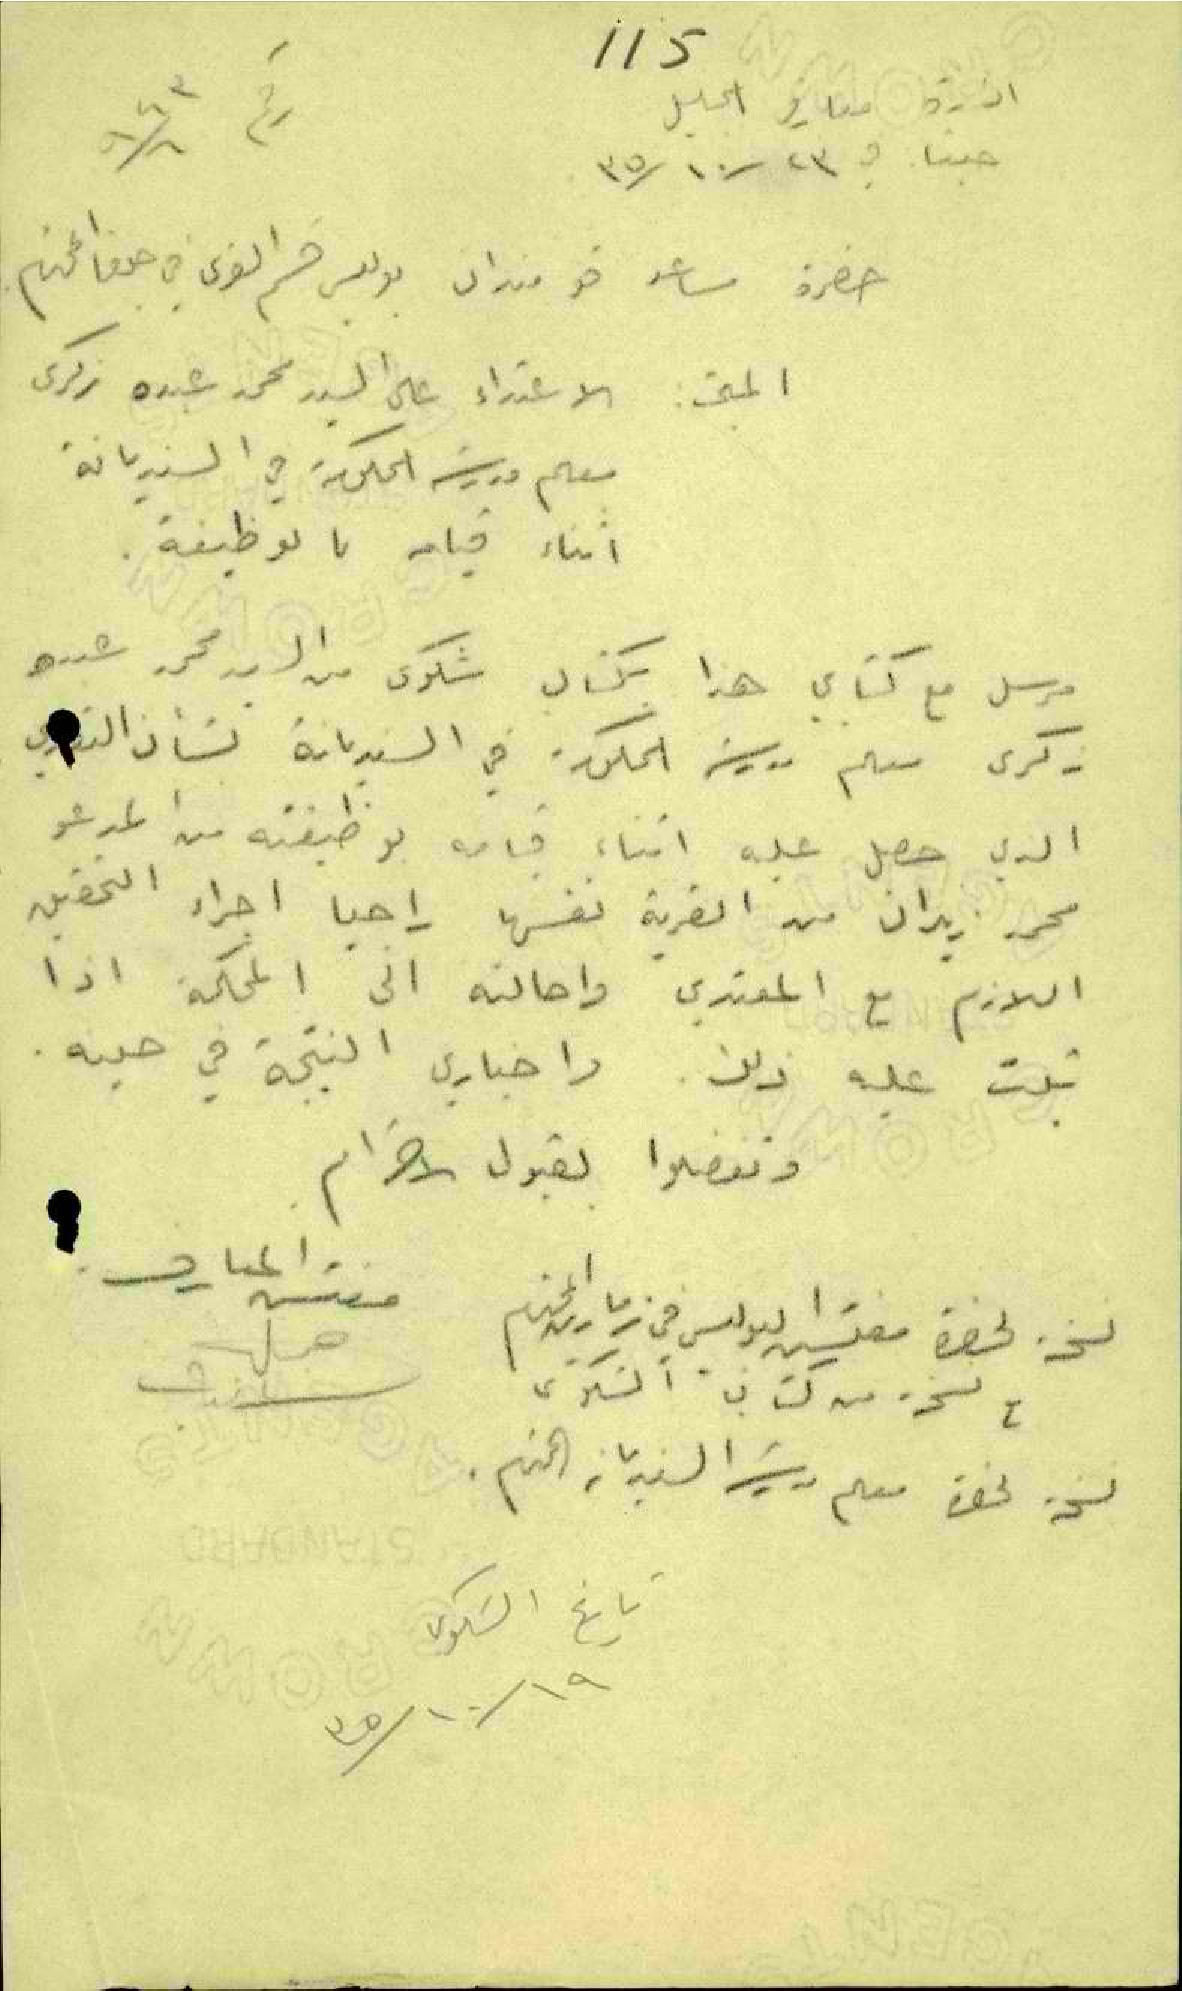 115
ادارة معارف الجليل
رقم
حيفا في ٢٣/١٠/٣٥
حضرة مساعد قومندان بوليس قسم القرى في حيفا المحترم
المبحث: الاعتداء على السيد محمد عبده زكرى
معلم مدرسة الحكومة في السنديانة
اثناء قيامه بالوظيفة.
مرسل مع كتابي هذا بكتاب شكوى من السيد محمد عبده
زكرى معلم مدرسة الحكومة في السنديانة بشأن التعدي
الذي حصل عليه اثناء قيامه بوظيفته من المدعو
محمد زيدان من القرية نفسها راجيا اجراء التحقيق
اللازم مع المعتدي واحالته الى المحكمة اذا
ثبت عليه ذلك. واخباري النتيجة في حينه.
وتفضلوا بقبول الاحترام.
مفتش المعارف
نسخة لحضرة مفتش البوليس في زمارين المحترم
مع نسخة من كتاب الشكوى
نسخة لحضرة معلم مدرسة السنديانة المحترم.
تاريخ الشكوى
١٩/١٠/٣٥
CROWN
AGENTS
STANDARD